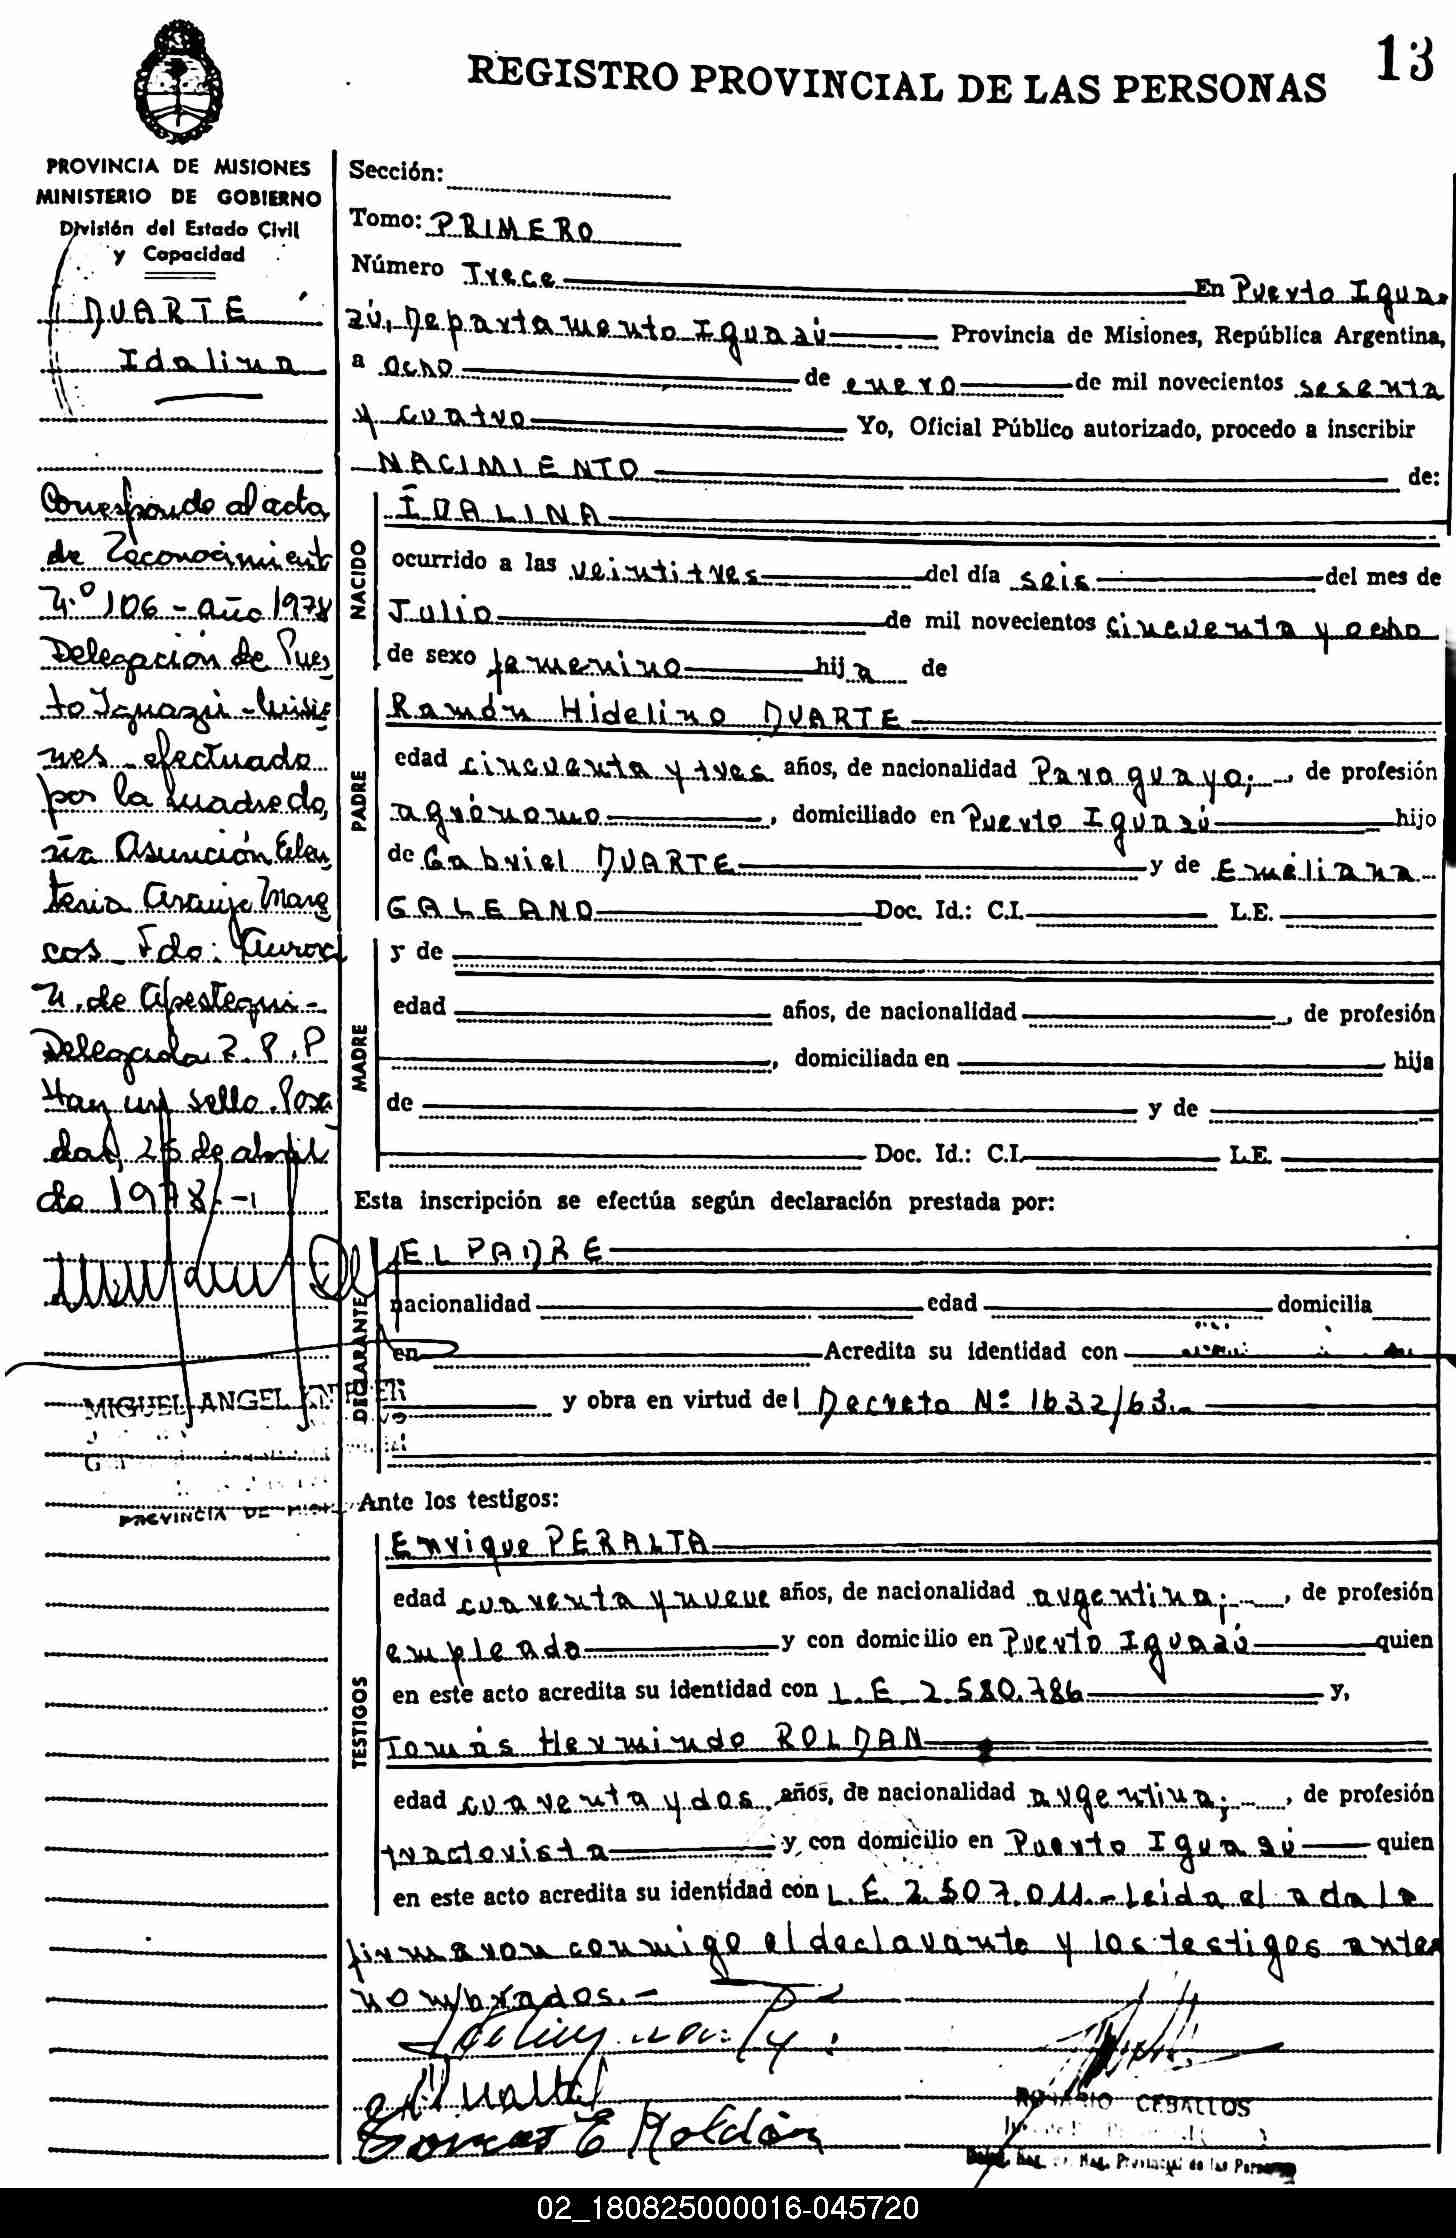 13
REGISTRO PROVINCIAL DE LAS PERSONAS
PROVINCIA DE MISIONES
MINISTERIO DE GOBIERNO
División del Estado Civil
y Capacidad
DUARTE
Idalina
Corresponde al acta
de Reconocimiento
N.º 106 - año 1978
Delegación de Puer
to Iguazú - Misio
nes - efectuado
por la madre do
ña Asunción Eleu
teria Araujo Mar
cos - Fdo: Aurora
N. de Apestegui -
Delegada R.P.P
Hay un sello. Posa
das, 26 de abril
de 1978.-
MIGUEL ANGEL
PROVINCIA DE
Sección:
Tomo: PRIMERO
Número Trece En Puerto Igua-
zú, Departamento Iguazú Provincia de Misiones, República Argentina,
a ocho de enero de mil novecientos sesenta
y cuatro Yo, Oficial Público autorizado, procedo a inscribir
NACIMIENTO de:
NACIDO
IDALINA
ocurrido a las veintitres del día seis del mes de
Julio de mil novecientos cincuenta y ocho
de sexo femenino hija de
PADRE
Ramón Hidelino DUARTE
edad cincuenta y tres años, de nacionalidad Paraguaya;-, de profesión
agrónomo, domiciliado en Puerto Iguazú hijo
de Gabriel DUARTE y de Emiliana
GALEANO Doc. Id.: C.I. L.E.
MADRE
y de
edad años, de nacionalidad , de profesión
, domiciliada en hija
de y de
Doc. Id.: C.I. L.E.
Esta inscripción se efectúa según declaración prestada por:
DECLARANTE
EL PADRE
nacionalidad edad domicilia
en Acredita su identidad con
y obra en virtud del Decreto Nº 1632/63.-
Ante los testigos:
TESTIGOS
Enrique PERALTA
edad cuarenta y nueve años, de nacionalidad argentina;-, de profesión
empleado y con domicilio en Puerto Iguazú quien
en este acto acredita su identidad con L.E. 2.580.786 y,
Tomás Hermindo ROLDAN
edad cuarenta y dos años, de nacionalidad argentina;-, de profesión
tractorista y con domicilio en Puerto Iguazú quien
en este acto acredita su identidad con L.E. 2.507.011.- Leida el acta la
firmaron conmigo el declarante y los testigos antes
nombrados.-
Tomas E Roldán
ROSARIO CEBALLOS
02_180825000016-045720